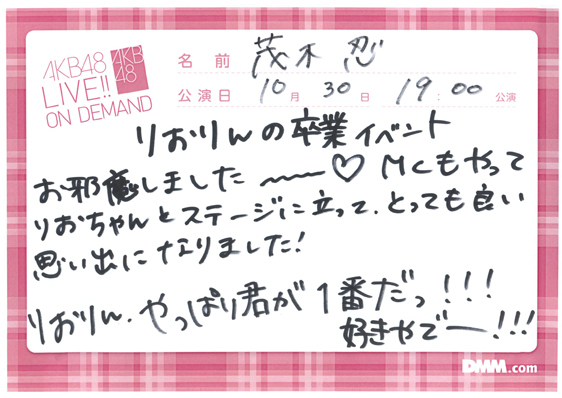 AKB48
LIVE!!
ON DEMAND
AKB
48
名前 茂木 忍
公演日 10月 30日 19:00 公演
りおりんの卒業イベント
お邪魔しました〜〜♡ MCもやって
りおちゃんとステージに立って、とっても良い
思い出になりました!
りおりん、やっぱり君が1番だっ!!!
好きやでー!!!
DMM.com